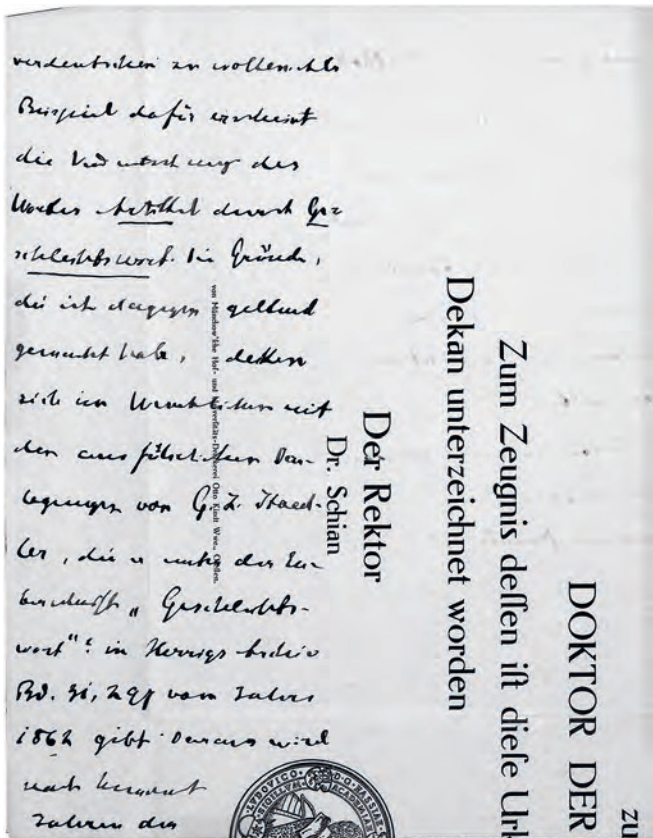 verdeutschen zu wollen. Als
Beispiel dafür erscheint
die Verdeutschung des
Wortes Artikel durch Ge-
schlechtswort. Die Gründe,
die ich dagegen geltend
gemacht habe, decken
sich im Wesentlichen mit
den ausführlichen Dar-
legungen von G. Z. Staed-
ler, die er unter der Ue-
berschrift „Geschlechts-
wort“ in Herrigs Archiv
Bd. 31, vom Jahre
1862 gibt. Daraus wird
nach
Jahren das
von Münchow'sche Hof- und Universitäts-Druckerei Otto Kindt Wwe., Gießen.
Der Rektor
Dr. Schian
Zum Zeugnis deſſen iſt dieſe Url
Dekan unterzeichnet worden
DOKTOR DER
zu
LUDOVICO
D.O. HASSIAE
SIGILLUM ACADEMIAE